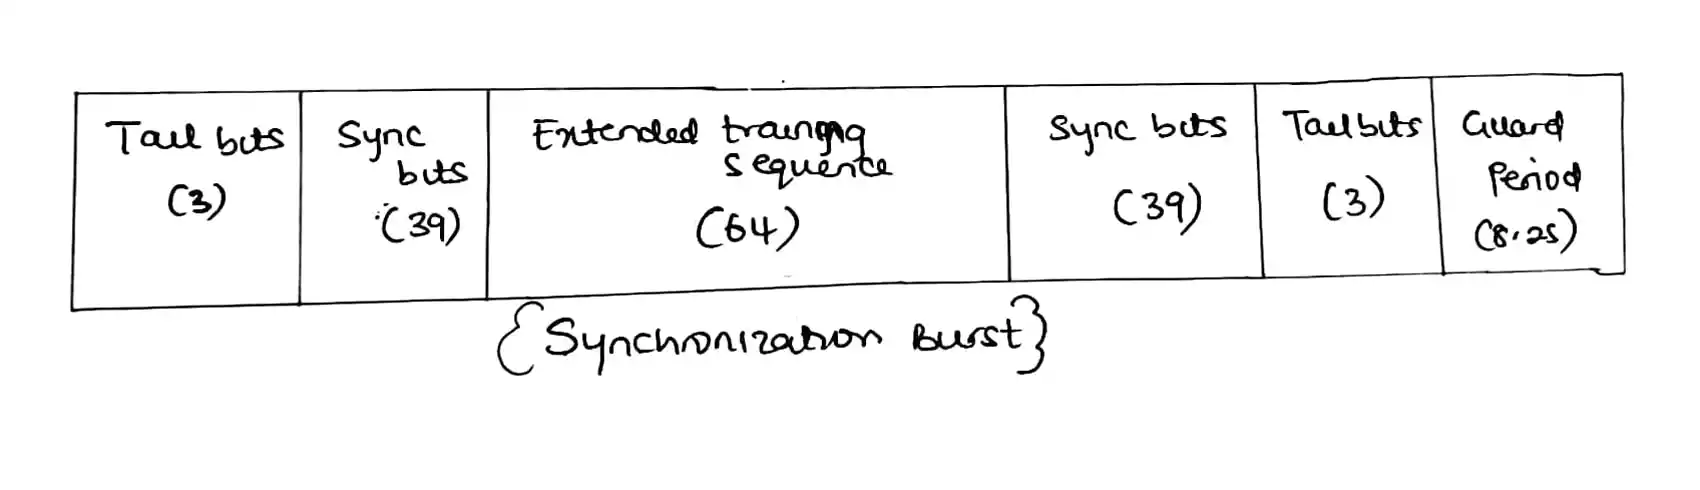 Tail bits
(3)
Sync
bits
(39)
Extended training
sequence
(64)
Sync bits
(39)
Tail bits
(3)
Guard
Period
(8.25)
{Synchronization Burst}